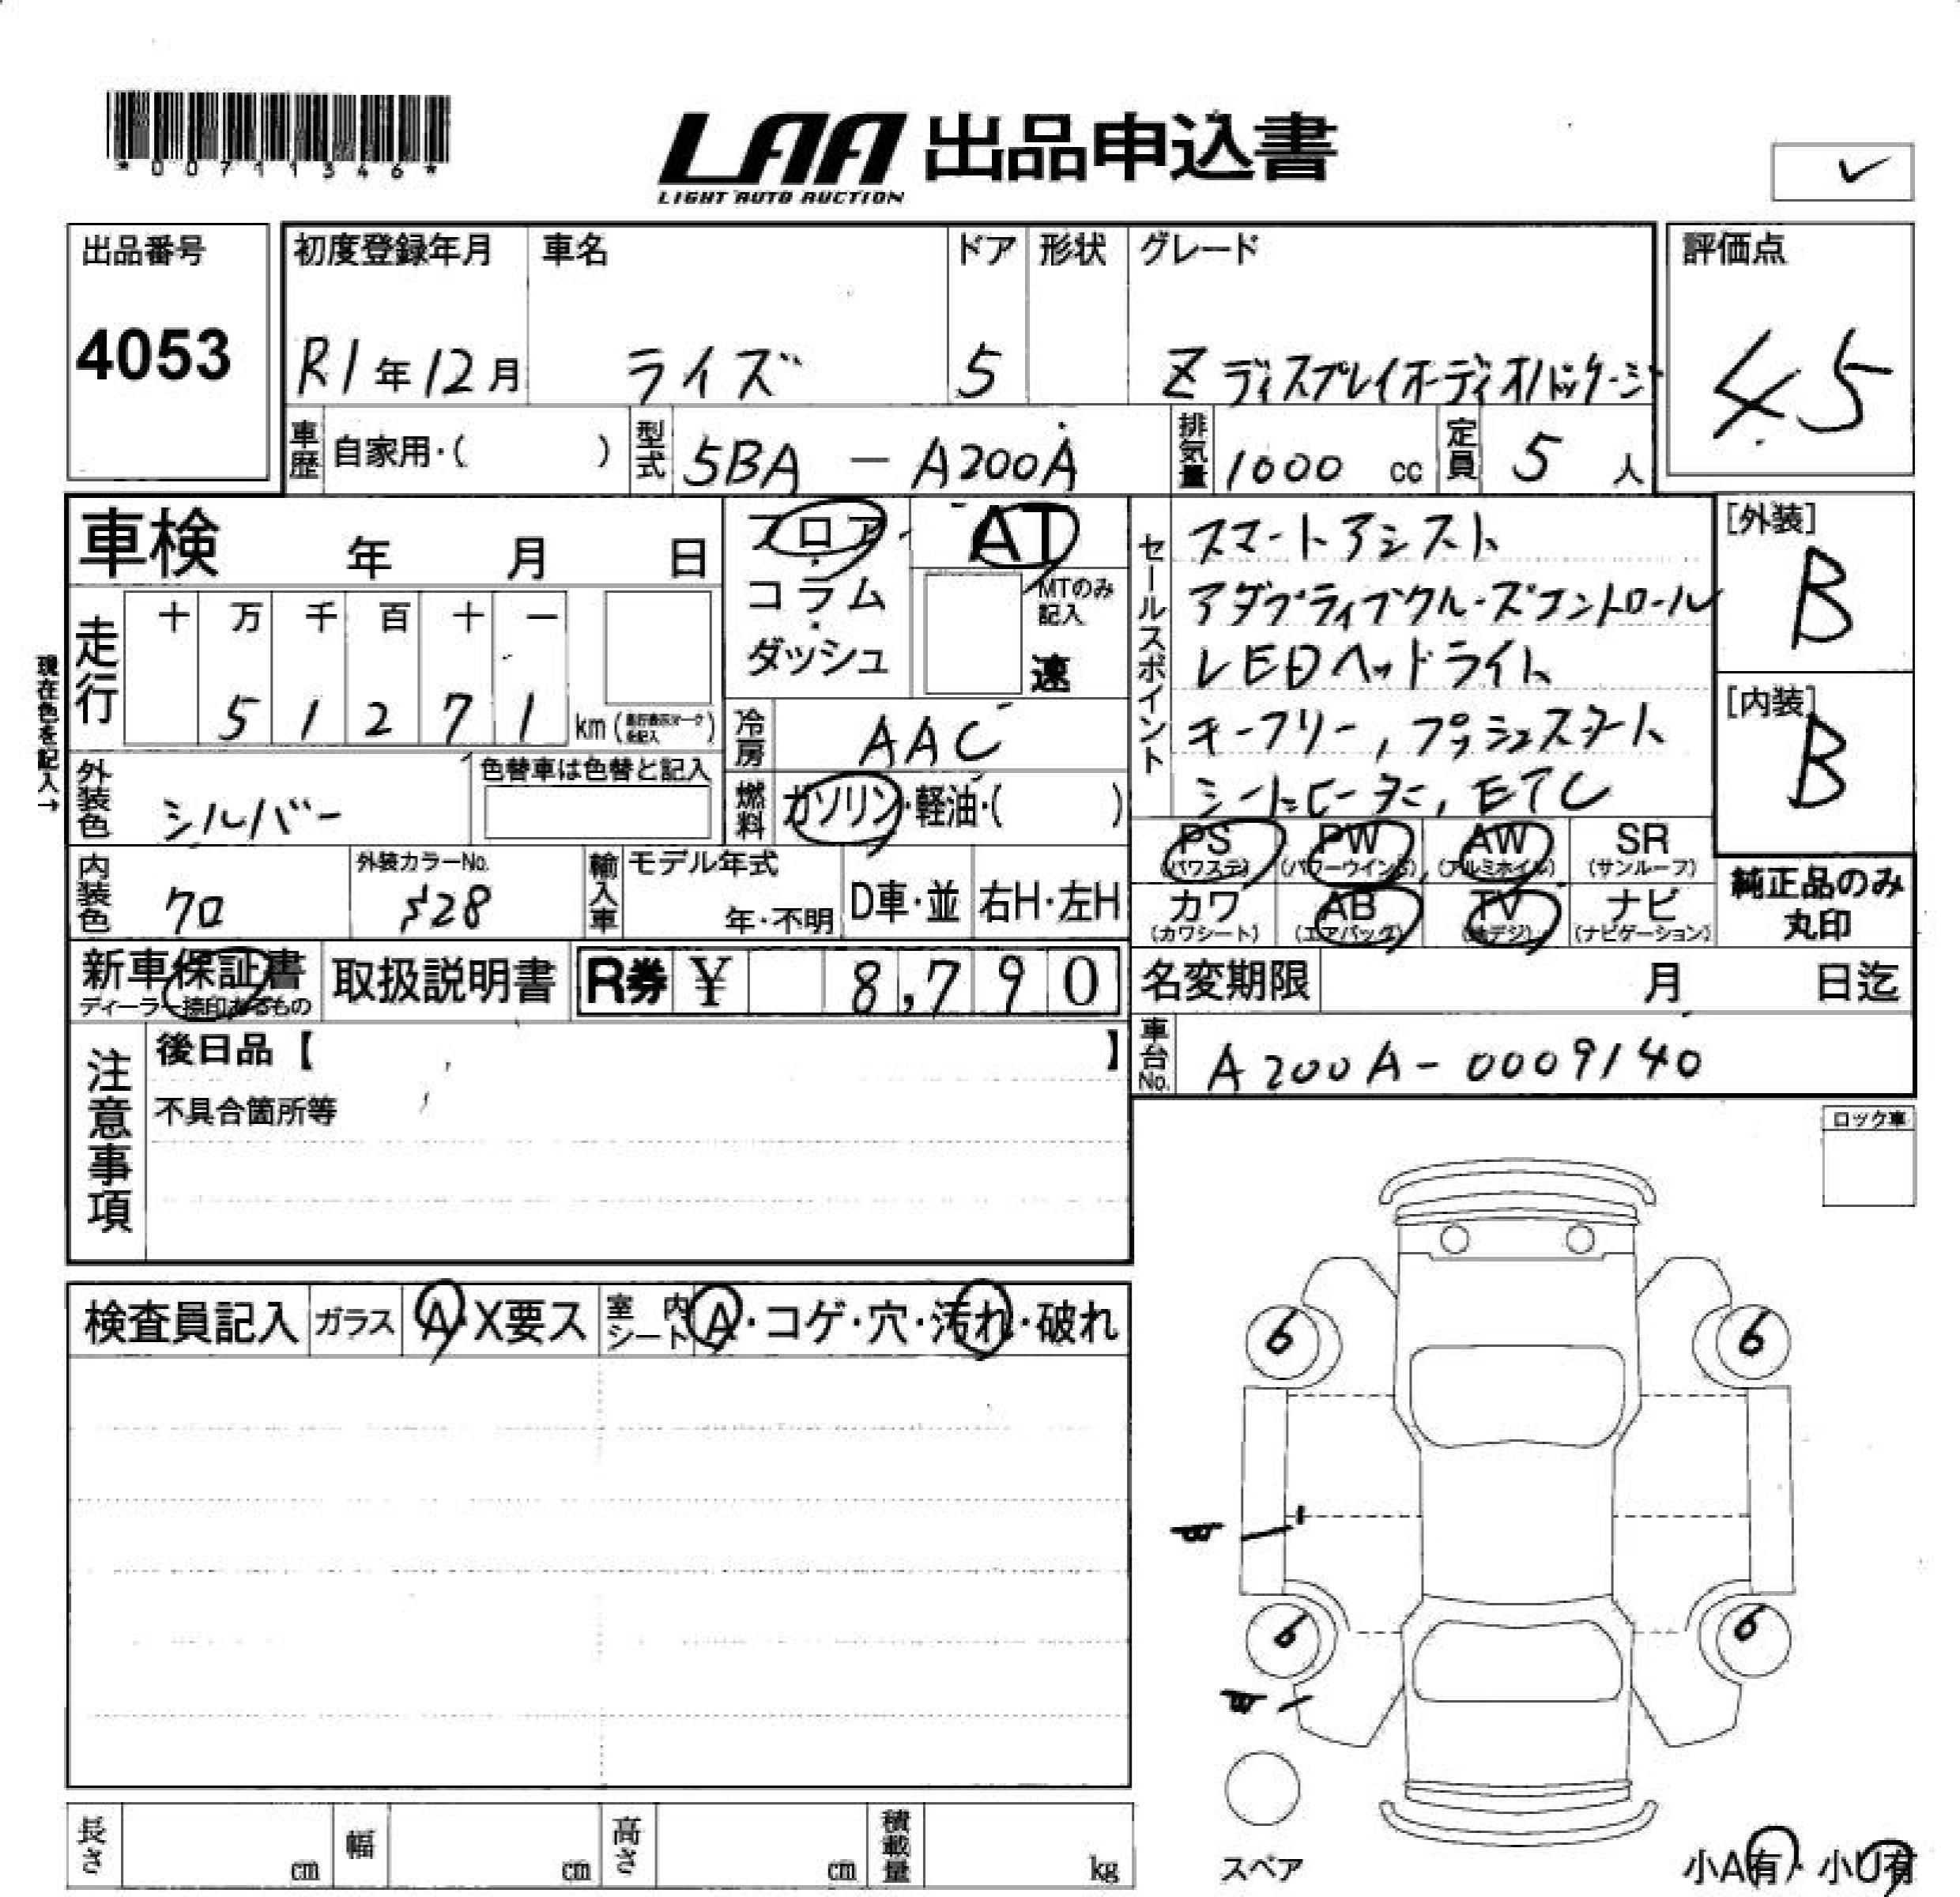 *00711346*
LAA 出品申込書
LIGHT AUTO AUCTION
出品番号
4053
初度登録年月 車名 ドア 形状 グレード
R1年12月 ライズ 5 Z ディスプレイオーディオパッケージ
評価点
4.5
車歴 自家用・( ) 型式 5BA - A200A 排気量 1000 cc 定員 5 人
車検 年 月 日
フロア・コラム・ダッシュ
AT
MTのみ記入
速
セールスポイント
スマートアシスト
アダプティブクルーズコントロール
LEDヘッドライト
キーフリー, プッシュスタート
シートヒーター, ETC
[外装]
B
[内装]
B
現在色を記入→
走行 十 万 千 百 十 一
5 1 2 7 1 km
冷房 AAC
外装色 シルバー 色替車は色替と記入
燃料 ガソリン・軽油・( )
内装色 クロ 外装カラーNo. S28 輸入車 モデル年式 年・不明 D車・並 右H・左H
PS (パワステ) PW (パワーウインド) AW (アルミホイル) SR (サンルーフ)
カワ (カワシート) AB (エアバック) TV (地デジ) ナビ (ナビゲーション)
純正品のみ
丸印
新車保証書
ディーラー捺印あるもの
取扱説明書 R券 ¥ 8,790
名変期限 月 日迄
車台No. A200A-0009140
注意事項
後日品【 】
不具合箇所等
ロック車
検査員記入 ガラス A・X要ス 室内シート A・コゲ・穴・汚れ・破れ
6 6
6 6
スペア
長さ cm 幅 cm 高さ cm 積載量 kg
小A有・小U有